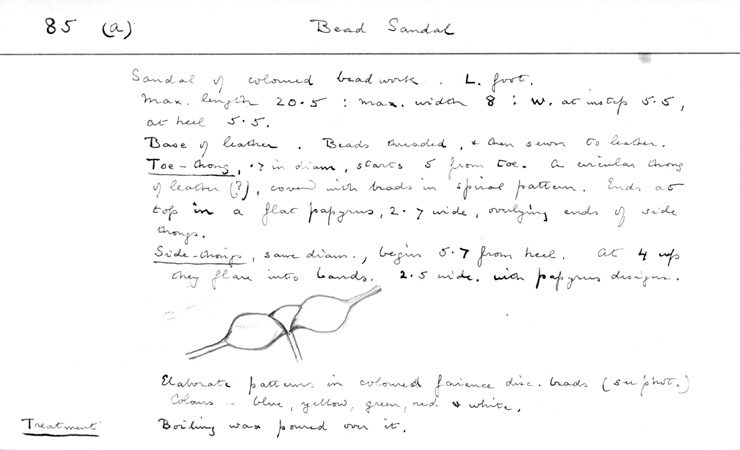 85 (a) Bead Sandal
Sandal of coloured beadwork. L. foot.
Max. length 20.5 : max. width 8 : W. at instep 5.5,
at heel 5.5.
Base of leather. Beads threaded, & then sewn to leather.
Toe-thong, .7 in diam, starts 5 from toe. A circular thong
of leather (?), covered with beads in spiral pattern. Ends at
top in a flat papyrus, 2.7 wide, overlying ends of side
thongs.
Side-thongs, same diam., begin 5.7 from heel. At 4 up
they flare into bands. 2.5 wide. with papyrus designs.
Elaborate patterns in coloured faience disc. beads (see phot.)
Colours - blue, yellow, green, red & white.
Treatment Boiling wax poured over it.